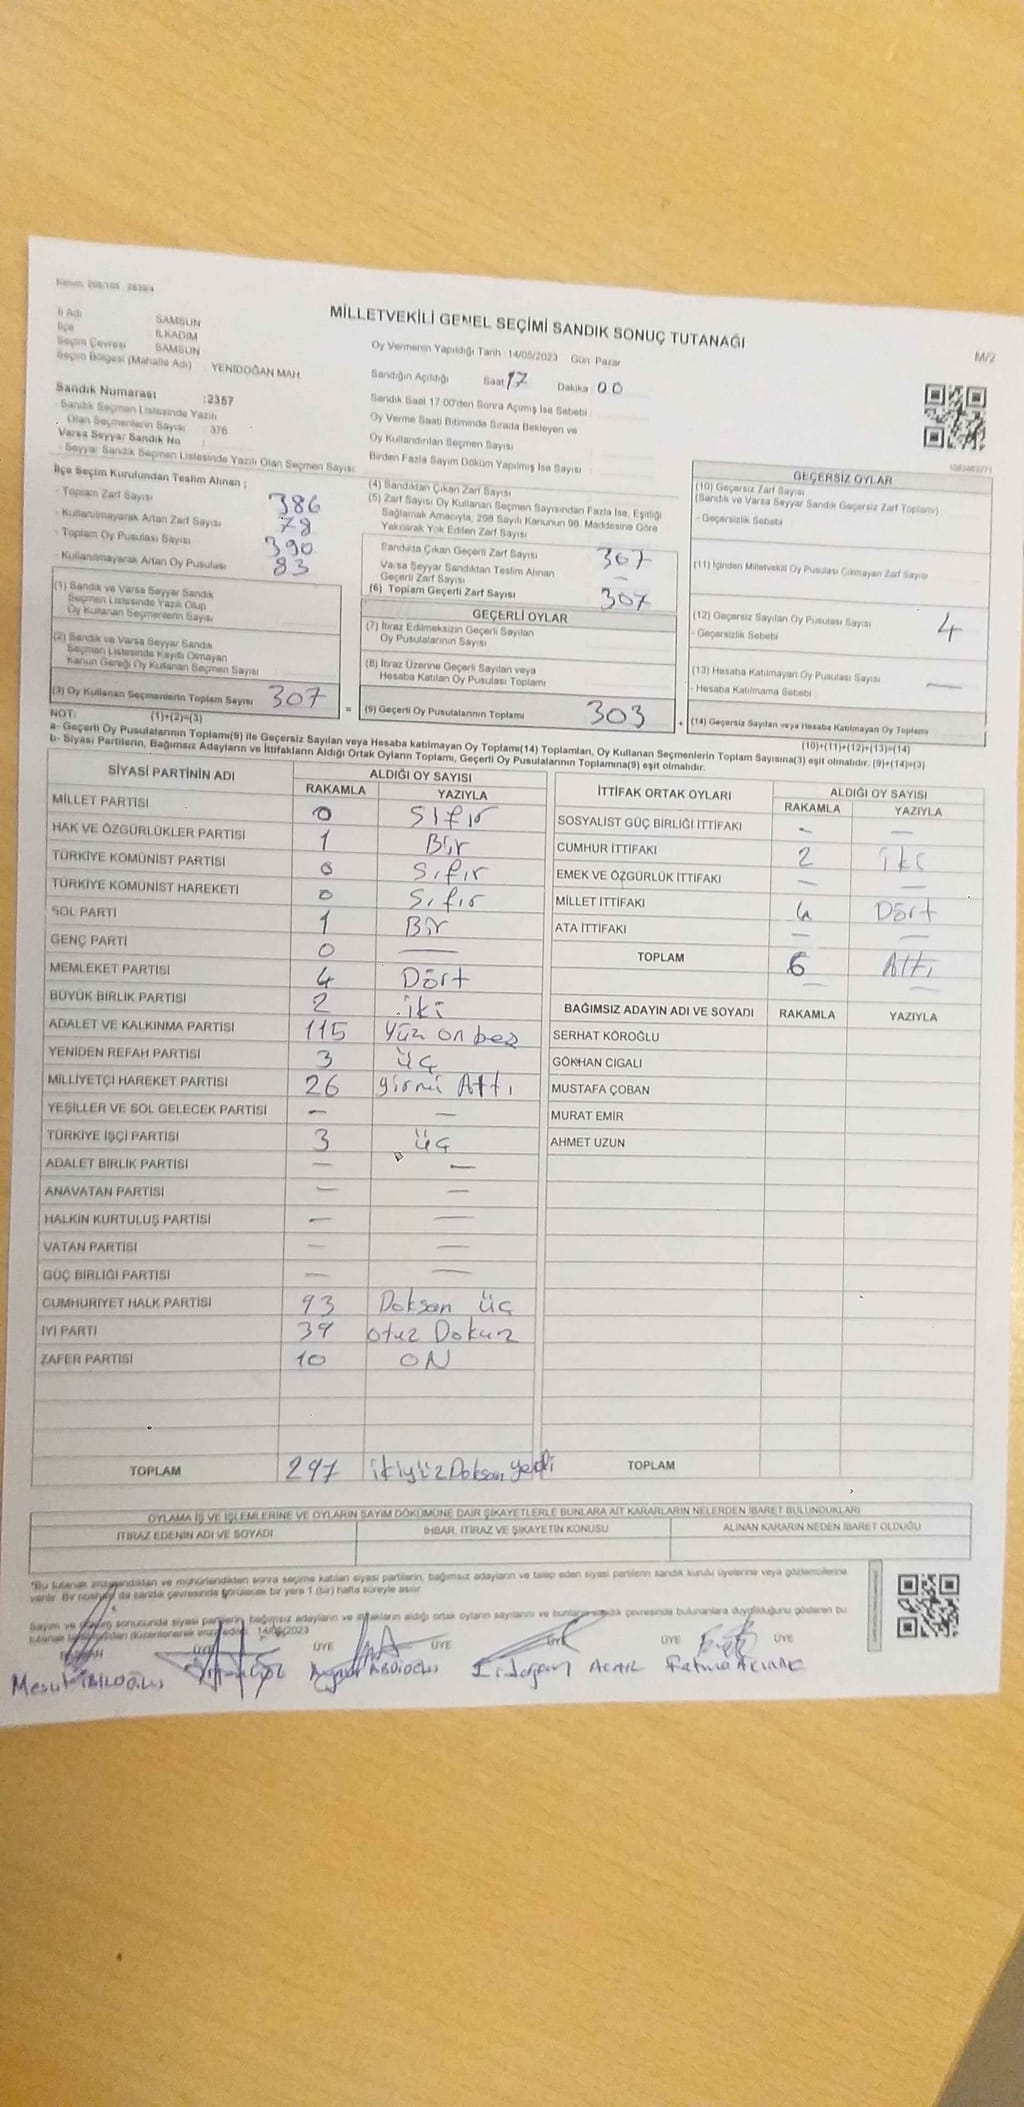 MİLLETVEKİLİ GENEL SEÇİMİ SANDIK SONUÇ TUTANAĞI
M/2
İl Adı SAMSUN
İlçe İLKADIM
Seçim Çevresi SAMSUN
Seçim Bölgesi (Mahalle Adı) : YENİDOĞAN MAH.
Sandık Numarası :2357
- Sandık Seçmen Listesinde Yazılı
Olan Seçmenlerin Sayısı : 376
Varsa Seyyar Sandık No :
- Seyyar Sandık Seçmen Listesinde Yazılı Olan Seçmen Sayısı
Oy Vermenin Yapıldığı Tarih : 14/05/2023 Gün Pazar
Sandığın Açıldığı Saat 17 Dakika 00
Sandık Saat 17:00'den Sonra Açımış İse Sebebi
Oy Verme Saati Bitiminde Sırada Bekleyen ve
Oy Kullandırılan Seçmen Sayısı
Birden Fazla Sayım Döküm Yapılmış İse Sayısı
İlçe Seçim Kurulundan Teslim Alınan ;
- Toplam Zarf Sayısı 386
- Kullanılmayarak Artan Zarf Sayısı 78
- Toplam Oy Pusulası Sayısı 390
- Kullanılmayarak Artan Oy Pusulası 83
(1) Sandık ve Varsa Seyyar Sandık
Seçmen Listesinde Yazılı Olup
Oy Kullanan Seçmenlerin Sayısı
(2) Sandık ve Varsa Seyyar Sandık
Seçmen Listesinde Kayıtlı Olmayan
Kanun Gereği Oy Kullanan Seçmen Sayısı
(3) Oy Kullanan Seçmenlerin Toplam Sayısı 307
(1)+(2)=(3)
(4) Sandıktan Çıkan Zarf Sayısı
(5) Zarf Sayısı Oy Kullanan Seçmen Sayısından Fazla İse, Eşitliği
Sağlamak Amacıyla, 298 Sayılı Kanunun 98. Maddesine Göre
Yakılarak Yok Edilen Zarf Sayısı
Sandıkta Çıkan Geçerli Zarf Sayısı 307
Varsa Seyyar Sandıktan Teslim Alınan
Geçerli Zarf Sayısı –
(6) Toplam Geçerli Zarf Sayısı 307
GEÇERLİ OYLAR
(7) İtiraz Edilmeksizin Geçerli Sayılan
Oy Pusulalarının Sayısı
(8) İtiraz Üzerine Geçerli Sayılan veya
Hesaba Katılan Oy Pusulası Toplamı
= (9) Geçerli Oy Pusulalarının Toplamı 303 +
GEÇERSİZ OYLAR
(10) Geçersiz Zarf Sayısı
(Sandık ve Varsa Seyyar Sandık Geçersiz Zarf Toplamı)
- Geçersizlik Sebebi
(11) İçinden Milletvekili Oy Pusulası Çıkmayan Zarf Sayısı
(12) Geçersiz Sayılan Oy Pusulası Sayısı 4
- Geçersizlik Sebebi
(13) Hesaba Katılmayan Oy Pusulası Sayısı —
- Hesaba Katılmama Sebebi
(14) Geçersiz Sayılan veya Hesaba Katılmayan Oy Toplamı
(10)+(11)+(12)+(13)=(14)
NOT:
a- Geçerli Oy Pusulalarının Toplamı(9) ile Geçersiz Sayılan veya Hesaba katılmayan Oy Toplamı(14) Toplamları, Oy Kullanan Seçmenlerin Toplam Sayısına(3) eşit olmalıdır. (9)+(14)=(3)
b- Siyasi Partilerin, Bağımsız Adayların ve İttifakların Aldığı Ortak Oyların Toplamı, Geçerli Oy Pusulalarının Toplamına(9) eşit olmalıdır.
SİYASİ PARTİNİN ADI ALDIĞI OY SAYISI
RAKAMLA YAZIYLA
MİLLET PARTİSİ 0 Sıfır
HAK VE ÖZGÜRLÜKLER PARTİSİ 1 Bir
TÜRKİYE KOMÜNİST PARTİSİ 0 Sıfır
TÜRKİYE KOMÜNİST HAREKETİ 0 Sıfır
SOL PARTİ 1 Bir
GENÇ PARTİ 0 —
MEMLEKET PARTİSİ 4 Dört
BÜYÜK BİRLİK PARTİSİ 2 iki
ADALET VE KALKINMA PARTİSİ 115 Yüz on beş
YENİDEN REFAH PARTİSİ 3 üç
MİLLİYETÇİ HAREKET PARTİSİ 26 yirmi Altı
YEŞİLLER VE SOL GELECEK PARTİSİ — —
TÜRKİYE İŞÇİ PARTİSİ 3 üç
ADALET BİRLİK PARTİSİ — —
ANAVATAN PARTİSİ — —
HALKIN KURTULUŞ PARTİSİ — —
VATAN PARTİSİ — —
GÜÇ BİRLİĞİ PARTİSİ — —
CUMHURİYET HALK PARTİSİ 93 Doksan üç
İYİ PARTİ 39 otuz Dokuz
ZAFER PARTİSİ 10 ON
TOPLAM 297 ikiyüz Doksan yedi
İTTİFAK ORTAK OYLARI ALDIĞI OY SAYISI
RAKAMLA YAZIYLA
SOSYALİST GÜÇ BİRLİĞİ İTTİFAKI – —
CUMHUR İTTİFAKI 2 iki
EMEK VE ÖZGÜRLÜK İTTİFAKI — —
MİLLET İTTİFAKI 4 Dört
ATA İTTİFAKI — —
TOPLAM 6 Altı
BAĞIMSIZ ADAYIN ADI VE SOYADI RAKAMLA YAZIYLA
SERHAT KÖROĞLU
GÖKHAN CIGALI
MUSTAFA ÇOBAN
MURAT EMİR
AHMET UZUN
TOPLAM
OYLAMA İŞ VE İŞLEMLERİNE VE OYLARIN SAYIM DÖKÜMÜNE DAİR ŞİKAYETLERLE BUNLARA AİT KARARLARIN NELERDEN İBARET BULUNDUKLARI
İTİRAZ EDENİN ADI VE SOYADI İHBAR, İTİRAZ VE ŞİKAYETİN KONUSU ALINAN KARARIN NEDEN İBARET OLDUĞU
"Bu tutanak imzalandıktan ve mühürlendikten sonra seçime katılan siyasi partilerin, bağımsız adayların ve talep eden siyasi partilerin sandık kurulu üyelerine veya gözlemcilerine
verilir. Bir nüshası da sandık çevresinde görülecek bir yere 1 (bir) hafta süreyle asılır.
Sayım ve döküm sonucunda siyasi partilerin, bağımsız adayların ve ittifakların aldığı ortak oyların sayılarını ve bunların sandık çevresinde bulunanlara duyrulduğunu gösteren bu
14/05/2023
ÜYE ÜYE ÜYE ÜYE ÜYE ÜYE